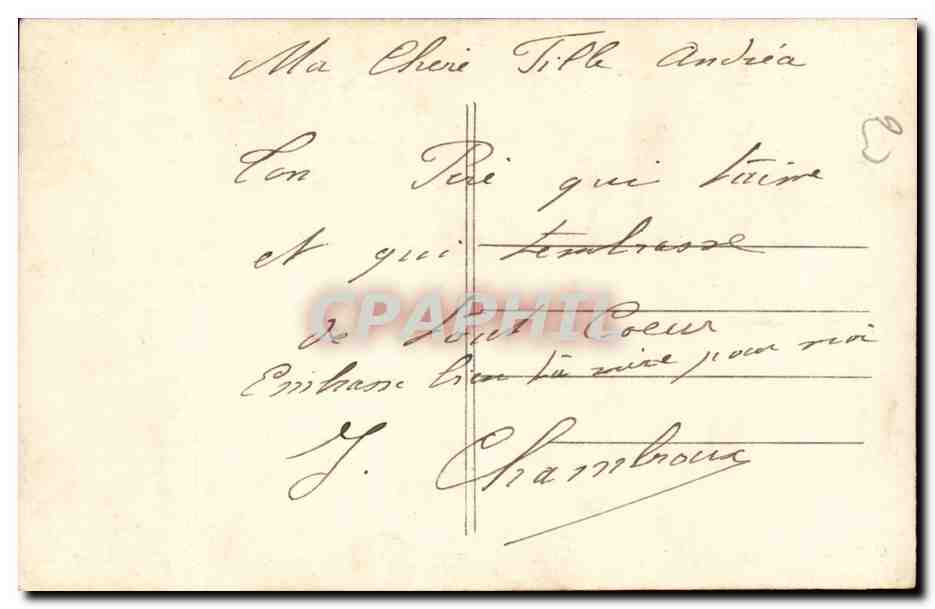 Ma Chère Fille Andréa
Ton Père qui t'aime
et qui tembrasse
CPAPHIL
de tout Coeur
Embrasse bien ta mère pour moi
J. Chambroux